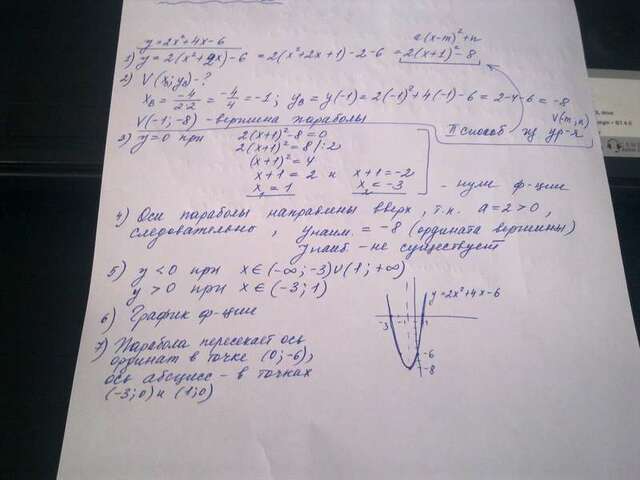 y=2x²+4x-6
a(x-m)²+n
1) y=2(x²+2x)-6 = 2(x²+2x+1)-2-6 = 2(x+1)²-8
2) V(x; yв)-?
xв = -4/2·2 = -4/4 = -1; yв = y(-1) = 2(-1)²+4(-1)-6 = 2-4-6 = -8
V(-1; -8) - вершина параболы
V(m; n)
II способ из ур-я
3) y=0 при 2(x+1)²-8=0
2(x+1)²=8 /:2
(x+1)²=4
x+1=2 и x+1=-2
x₁=1 x₂=-3 - нули ф-ции
4) Оси параболы направлены вверх, т.к. a=2>0,
следовательно, yнаим. = -8 (ордината вершины)
yнаиб. - не существует
5) y<0 при x∈(-∞; -3)∪(1; +∞)
y>0 при x∈(-3; 1)
6) График ф-ции
y=2x²+4x-6
-3 -1 1
-6
-8
7) Парабола пересекает ось
ординат в точке (0; -6),
ось абсцисс - в точках
(-3; 0) и (1; 0)